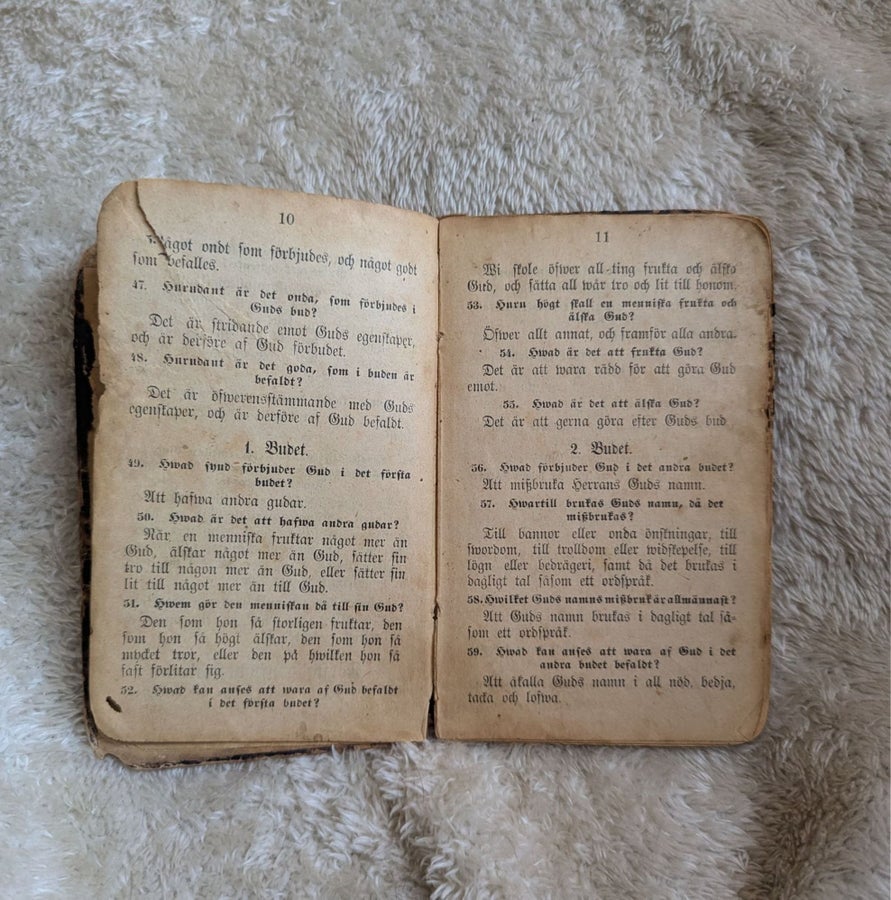 10
något ondt som förbjudes, och något godt
som befalles.
47. Hurudant är det onda, som förbjudes i
Guds bud?
Det är stridande emot Guds egenskaper,
och är derföre af Gud förbudet.
48. Hurudant är det goda, som i buden är
befaldt?
Det är öfwerensstämmande med Guds
egenskaper, och är derföre af Gud befaldt.
1. Budet.
49. Hwad synd förbjuder Gud i det första
budet?
Att hafwa andra gudar.
50. Hwad är det att hafwa andra gudar?
När en menniska fruktar något mer än
Gud, älskar något mer än Gud, sätter sin
tro till någon mer än Gud, eller sätter sin
lit till något mer än till Gud.
51. Hwem gör den menniskan då till sin Gud?
Den som hon så storligen fruktar, den
som hon så högt älskar, den som hon så
mycket tror, eller den på hwilken hon så
fast förlitar sig.
52. Hwad kan anses att wara af Gud befaldt
i det första budet?
11
Wi skole öfwer all-ting frukta och älska
Gud, och sätta all wår tro och lit till honom.
53. Huru högt skall en menniska frukta och
älska Gud?
Öfwer allt annat, och framför alla andra.
54. Hwad är det att frukta Gud?
Det är att wara rädd för att göra Gud
emot.
55. Hwad är det att älska Gud?
Det är att gerna göra efter Guds bud
2. Budet.
56. Hwad förbjuder Gud i det andra budet?
Att mißbruka Herrans Guds namn.
57. Hwartill brukas Guds namn, då det
mißbrukas?
Till bannor eller onda önskningar, till
swordom, till trolldom eller widskepelse, till
lögn eller bedrägeri, samt då det brukas i
dagligt tal såsom ett ordspråk.
58. Hwilket Guds namns mißbruk är allmännast?
Att Guds namn brukas i dagligt tal så-
som ett ordspråk.
59. Hwad kan anses att wara af Gud i det
andra budet befaldt?
Att åkalla Guds namn i all nöd, bedja,
tacka och lofwa.